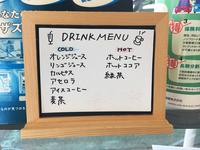 DRINK MENU
COLD
オレンジジュース
リンゴジュース
カルピス
アセロラ
アイスコーヒー
麦茶
HOT
ホットコーヒー
ホットココア
緑茶